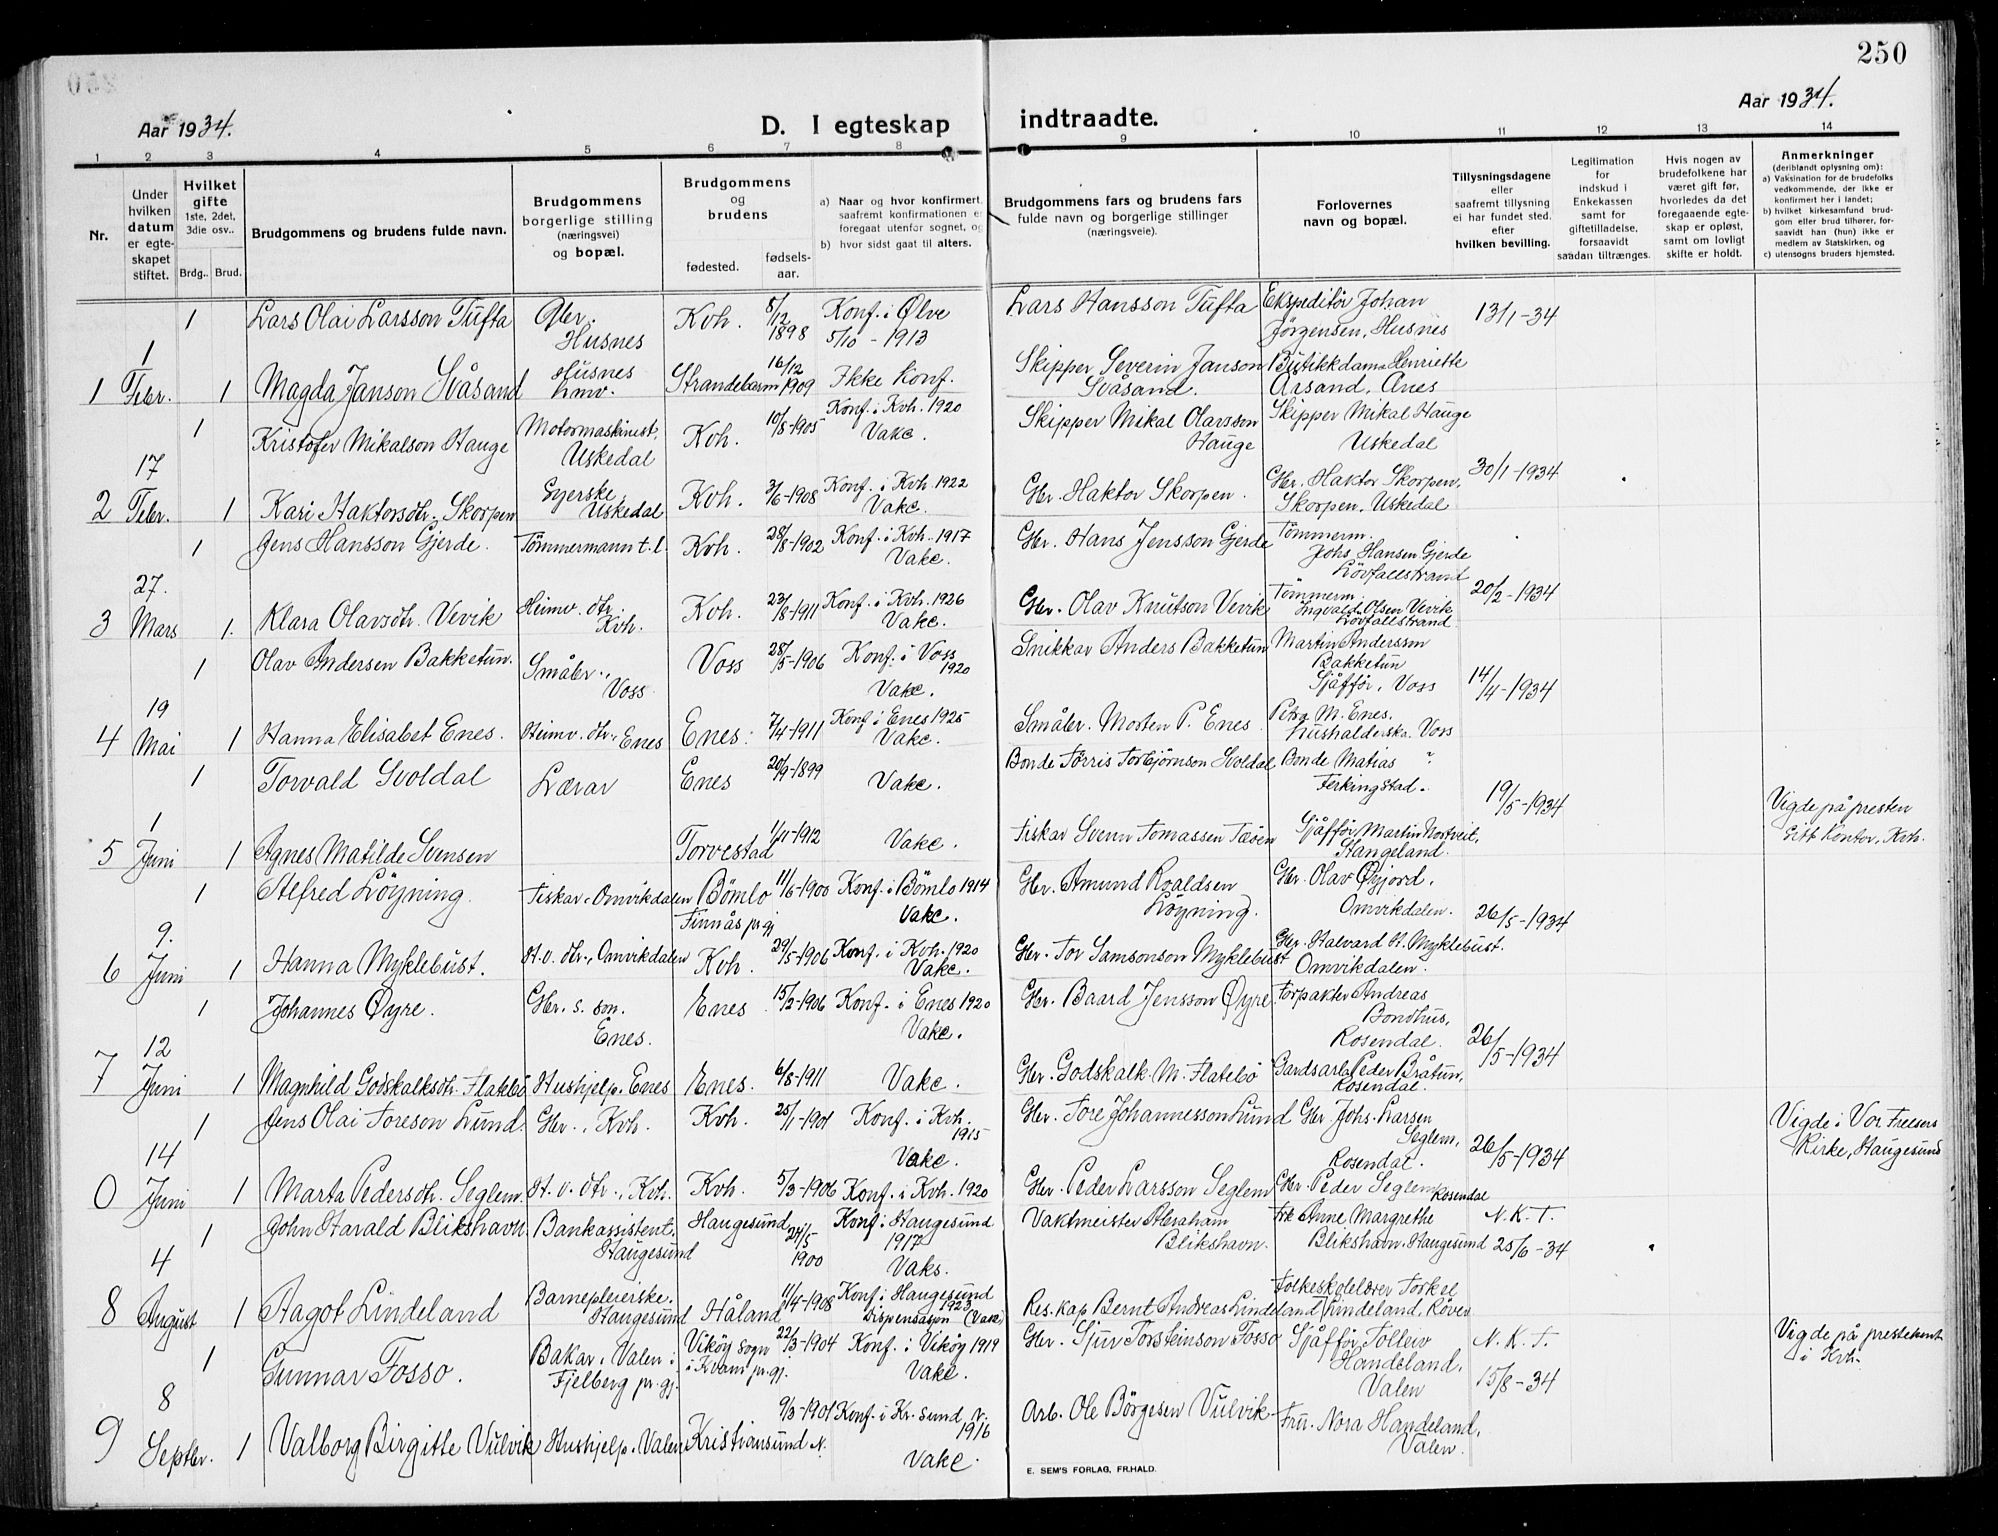 250
Aar 1934.
D. I egteskap indtraadte.
Aar 1934.
1 2 3 4 5 6 7 8 9 10 11 12 13 14
Nr.
Under hvilken datum er egteskapet stiftet.
Hvilket gifte
1ste, 2det, 3die osv..
Brdg.. Brud.
Brudgommens og brudens fulde navn.
Brudgommens borgerlige stilling (næringsvei) og bopæl.
Brudgommens og brudens
fødested.
fødselsaar.
a) Naar og hvor konfirmert, saafremt konfirmationen er foregaat utenfor sognet, og
b) hvor sidst gaat til alters.
Brudgommens fars og brudens fars fulde navn og borgerlige stillinger (næringsveie).
Forlovernes navn og bopæl.
Tillysningsdagene eller saafremt tillysning ei har fundet sted. efter hvilken bevilling.
Legitimation for indskud i Enkekassen samt for giftetilladelse, forsaavidt saadan tiltrænges.
Hvis nogen av brudefolkene har været gift før, hvorledes da det foregaaende egteskap er opløst, samt om lovligt skifte er holdt.
Anmerkninger
(deriblandt oplysning om):
a) Vaksination for de brudefolks vedkommende, der ikke er konfirmert her i landet;
b) hvilket kirkesamfund brudgom eller brud tilhører, forsaavidt han (hun) ikke er medlem av Statskirken, og
c) utensogns bruders hjemsted.
1 Lars Olai Larsson Tufta Gbr. Husnes Kvh. 8/12 1898 Konf. i Ølve 5/10 - 1913 Lars Hansson Tufta Ekspeditør Johan Jørgensen, Husnes 13/1-34
1 1 Febr. 1 Magda Janson Svåsand Husnes hmv. Strandebarm 16/12 1909 Ikke Konf. Skipper Severin Janson Svåsand. Butikkdama Henriette Årsand, Anes
1 Kristofer Mikalson Hauge Motormaskinist, Uskedal Kvh. 10/8-1905 Konf. i Kvh. 1920 Vakc. Skipper Mikal Olavsson Hauge Skipper Mikal Hauge Uskedal
2 17 Febr. 1 Kari Haktorsdtr. Skorpen Syerske, Uskedal Kvh. 3/6-1908 Konf. i Kvh 1922 Vakc. Gbr. Haktor Skorpen. Gbr. Haktor Skorpen, Skorpen, Uskedal 30/1-1934
1 Jens Hansson Gjerde. Tømmermann t. l. Kvh. 28/8-1902 Konf. i Kvh. 1917 Vakc. Gbr. Hans Jensson Gjerde Tømmerm. Johs. Hansen Gjerde Løvfallstrand
3 27. Mars 1. Klara Olavsdtr. Vevik Heimv. dtr. Kvh. Kvh. 23/8-1911 Konf. i Kvh. 1926 Vakc. Gbr. Olav Knutson Vevik Tømmerm. Ingvald Olsen Vevik Løvfallstrand 20/2-1934
1 Olav Andersen Bakketun. Småbr., Voss Voss 28/5-1906 Konf. i Voss 1920 Vakc. Snikkar Anders Bakketun Martin Andersson Bakketun Sjåffør, Voss 14/4-1934
4 19 Mai 1 Hanna Elisabet Enes. Heimv. dtr. Enes Enes. 7/4-1911 Konf i Enes 1925 Vakc. Småbr. Morten P. Enes. Petra M. Enes. hushalderska. Voss
1 Torvald Svoldal Lærar Enes 20/9-1899 Vakc. Bonde Tørris Torbjørnson Svoldal Bonde Matias ? Ferkingstad.
5 1 Juni 1 Agnes Matilde Svensen Torvestad 1/11-1912 Vakc. Fiskar Svenn Tomassen Sjåffør Martin Nortveit, Stangeland. 19/5-1934 Vigde på presten sitt kontor, Kvh.
1 Alfred Løyning. Fiskar, Omvikdalen Bömlo Finnås pr.gj 11/6-1900 Konf. i Bömlo 1914 Vakc. Gbr. Amund Roaldsen Løyning. Gbr. Olav Øxjord. Omvikdalen. 26/5-1934
6 9. Juni 1 Hanna Myklebust. H.v. dtr., Omvikdalen Kvh. 29/5-1906 Konf. i Kvh. 1920 Vakc. Gbr. Tor Samsonson Myklebust Gbr. Halvard H. Myklebust. Omvikdalen.
1 Johannes Øyre. Gbr. s. son. Enes. Enes 15/2-1906 Konf. i Enes 1920 Vakc. Gbr. Baard Jensson Øyre Forpakter Andreas Bondhus, Rosendal.
7 12 Juni 1 Magnhild Godskalksdtr. Flatebö Hushjelp. Enes Enes. 6/8-1911 Vakc. Gbr. Godskalk M. Flatebö Gardsarb. Peder Bråtun, Rosendal. 26/5-1934
1 Jens Olai Toreson Lund. Gbr., Kvh. Kvh. 25/1-1901 Konf. i Kvh. 1915 Vakc. Gbr. Tore Johannesson Lund Gbr. Johs. Larsen Seglem, Rosendal. Vigde i Vor Frelsers Kirke, Haugesund
0 14 Juni 1 Marta Pedersdtr. Seglem H.v. dtr., Kvh. Kvh. 5/3-1906 Konf. i Kvh. 1920 Gbr. Peder Larsson Seglem Gbr. Peder Seglem Rosendal 26/5-1934
1 John Harald Blikshavn Bankassistent, Haugesund Haugesund 24/5 1900 Konf. i Haugesund 1917 Vaks. Vaktmeister Abraham Blikshavn. Frk Anne Margrethe Blikshavn. Haugesund N.K.T. 25/6-34
8 4 August 1 Aagot Lindeland Barnepleierske. Haugesund Håland 11/4-1908 Konf. i Haugesund 1923 Dispensasjon (Vaks) Res. kap Bernt Andreas Lindeland Folkeskolelærer Torkel Lindeland, Røver
1 Gunnar Fosso. Bakar, Valen i Fjelberg pr.gj. Vikøy sogn i Kvam pr.gj. 22/3-1904 Konf. i Vikøy 1919 Vakc. Gbr. Sjur Torsteinson Fosso Sjåffør Tolleiv Handeland, Valen N.K.T. 15/8-34 Vigde på prestekont i Kvh.
9 8 Septbr. 1 Valborg Birgitte Vulvik Hushjelp. Valen Kristiansund N. 9/3-1901 Konf. i Kr.sund N. 1916 Vakc Arb. Ole Börgesen Vulvik Fru. Nora Handeland, Valen.
E. SEM'S FORLAG, FR.HALD.